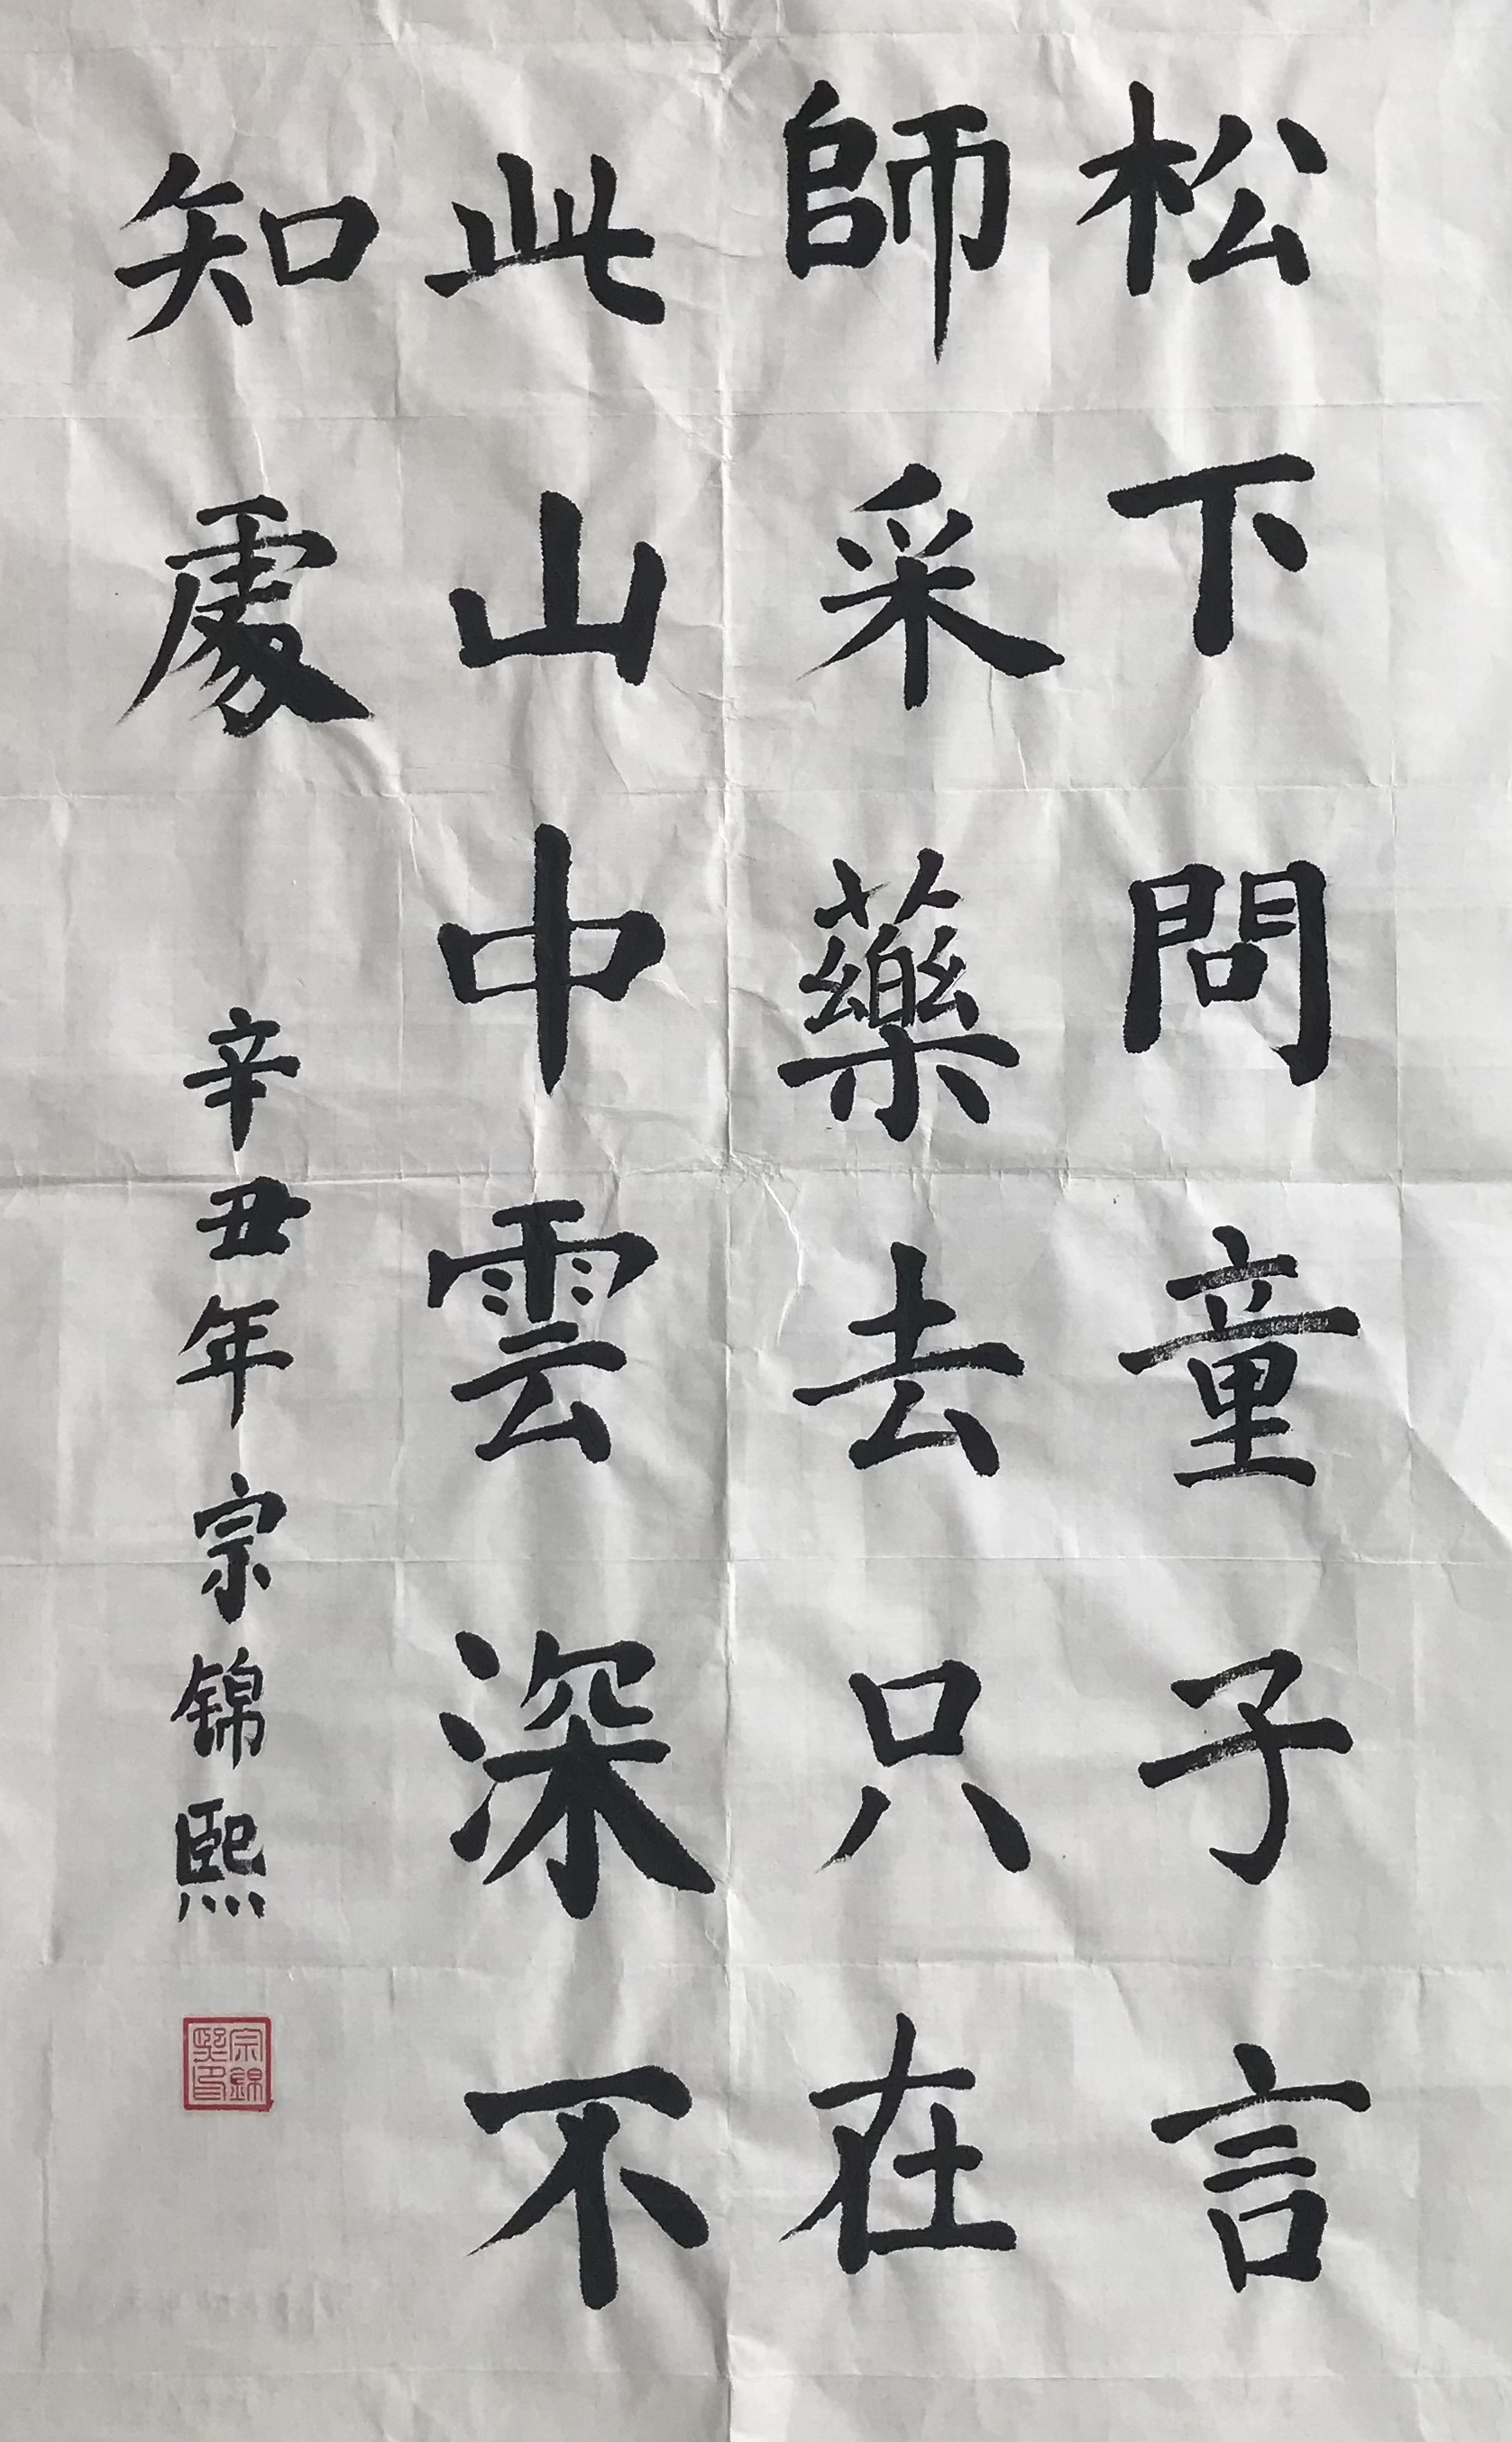 松下問童子言
師采藥去只在
此山中雲深不
知處
辛丑年宗锦熙
宗锦熙印